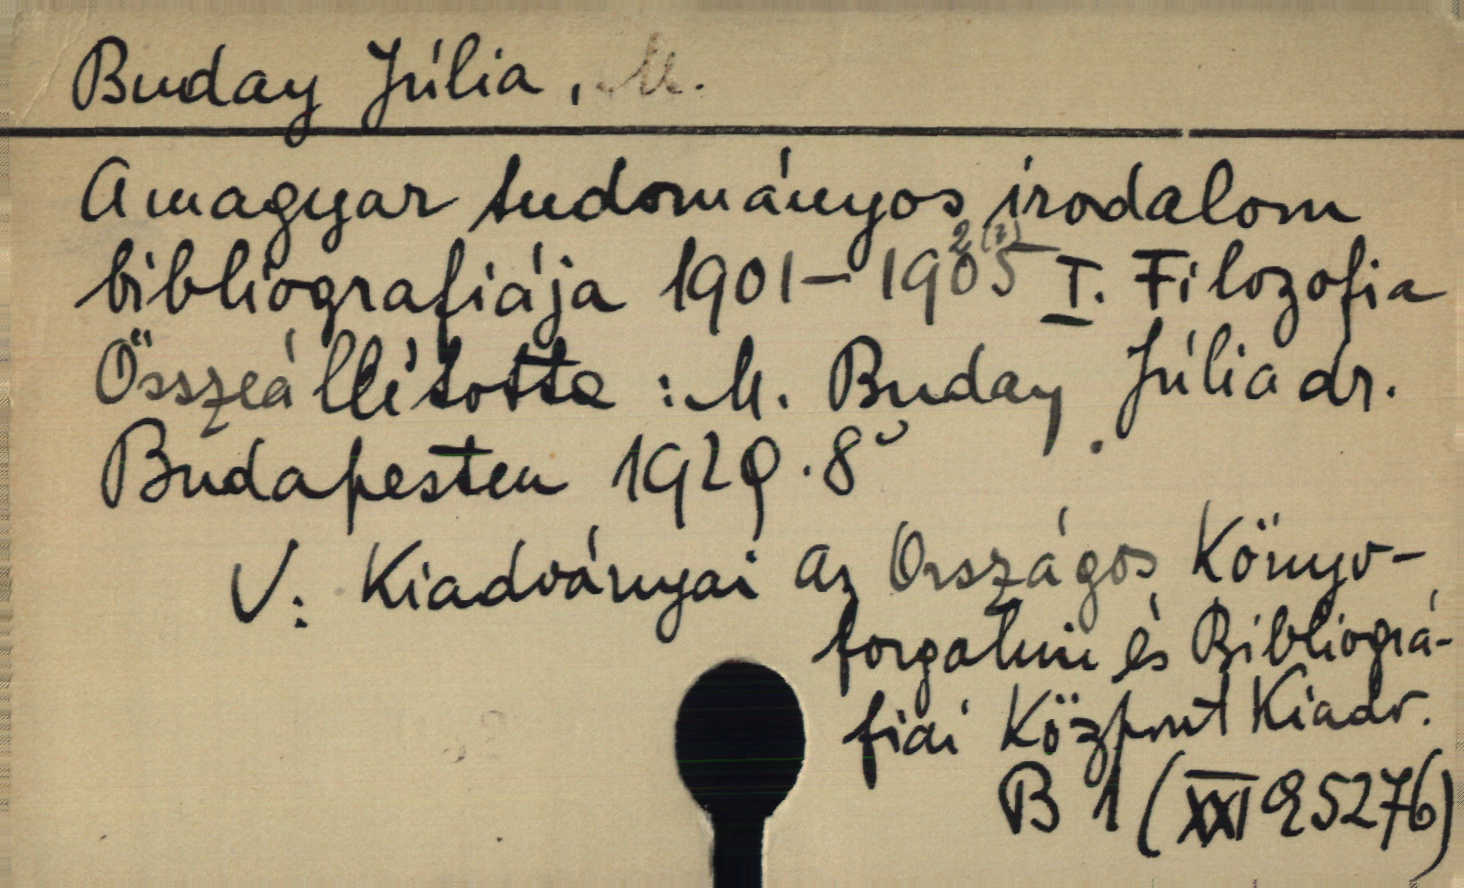 Buday Júlia, M.
A magyar tudományos irodalom
bibliografiája 1901–1905 I. Filozofia
2(?)
Összeállította : M. Buday Júlia dr.
Budapesten 1929. 8°
V: Kiadványai az Országos Könyv-
forgalmi és Bibliográ-
fiai Központ Kiadv.
B 1 (XXI 925276)